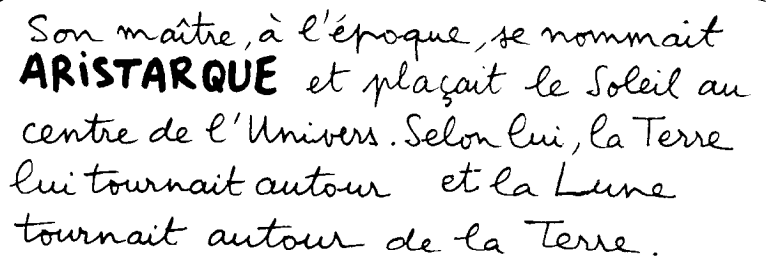 Son maître, à l'époque, se nommait
ARiSTARQUE et plaçait le Soleil au
centre de l'Univers. Selon lui, la Terre
lui tournait autour et la Lune
tournait autour de la Terre.